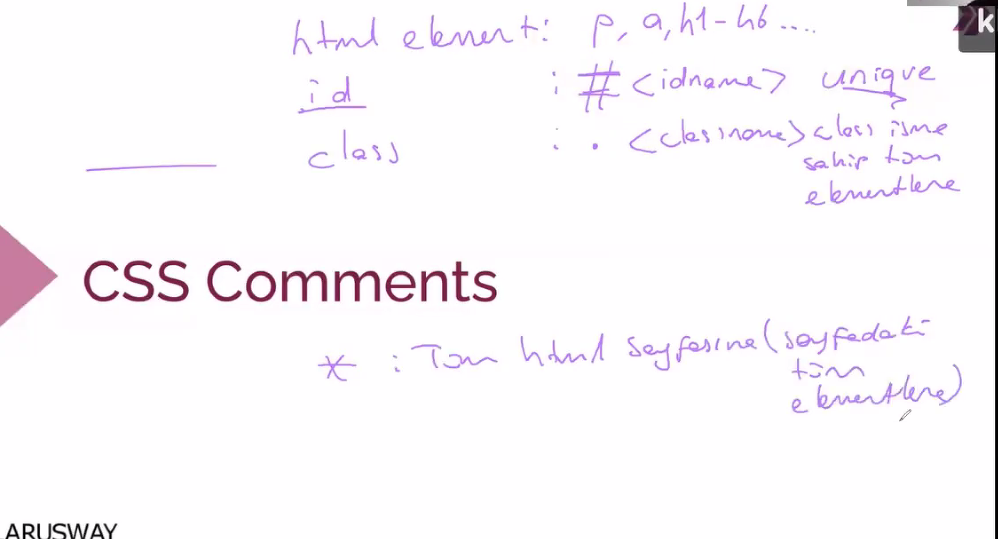 html element: p, a, h1-h6 ....
k
id : # <idname> unique
class : . <classname> class isme
sahip tüm
elementlere
CSS Comments
* : Tüm html sayfasına (sayfadaki
tüm
elementlere)
ARUSWAY